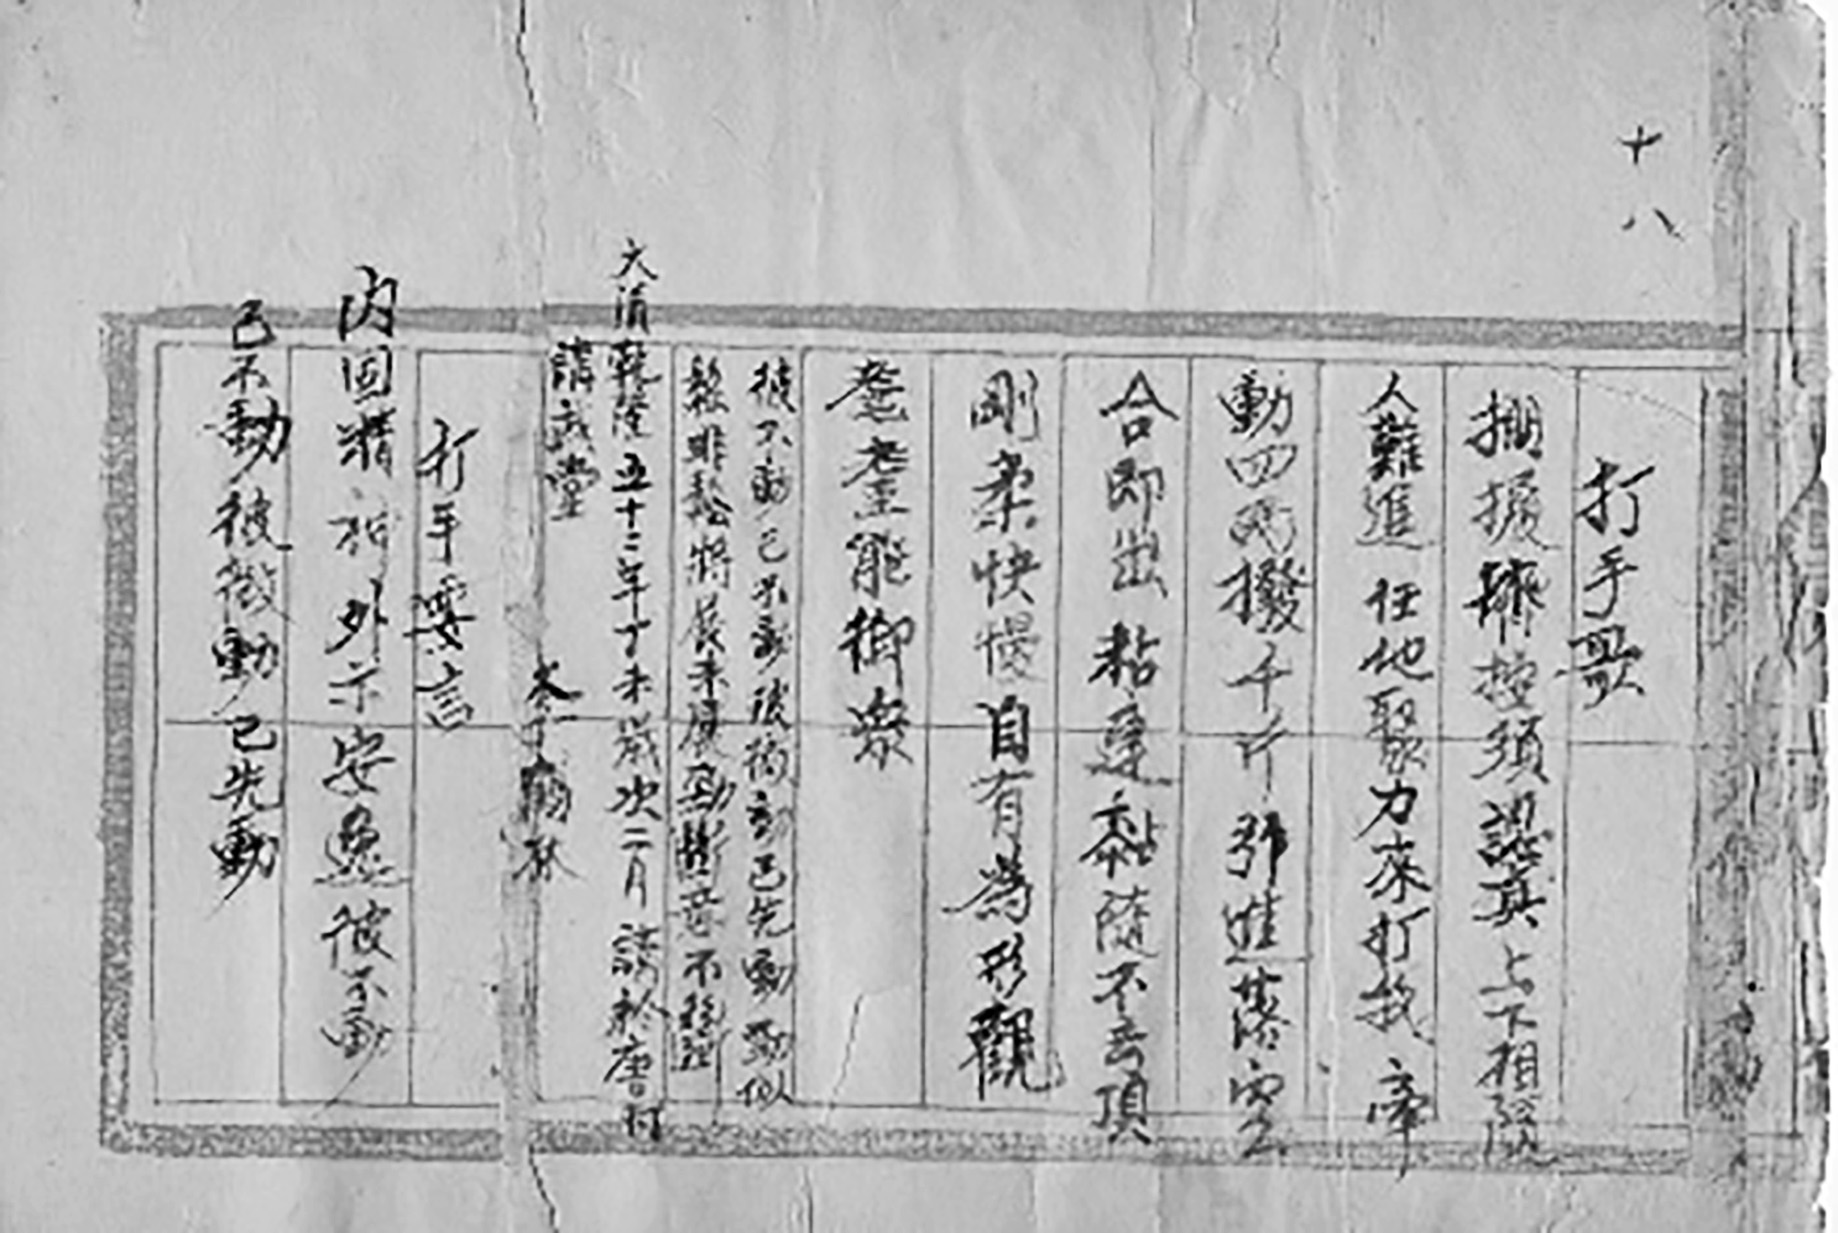 十八
打手歌
掤擠擠控須認真上下相隨
人難進任他聚力來打我牽
動四兩撥千斤引進落空
合即出粘連黏隨不丟頂
剛柔快慢自有為形觀
耄耋能御眾
彼不動己不動彼微動己先動勁似
鬆非鬆將展未展勁斷意不
大清乾隆五十二年丁未歲次二月 於唐村
講武堂 李鶴林
打手要言
內固精神外示安逸彼不動
己不動彼微動己先動